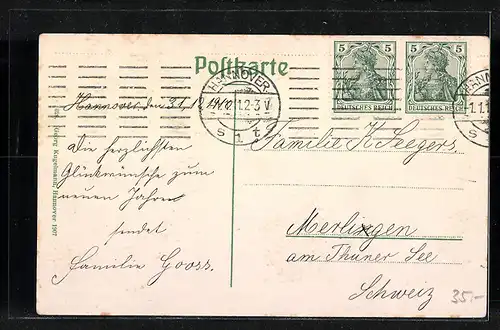 Postkarte
5 5
5 5
DEUTSCHES REICH
DEUTSCHES REICH
HANNOVER
1.1.12-3V
S 1. t
HANNOVER
1.1.1
S
Hannover, den 31.12.1910
Die herzlichsten
Glückwünsche zum
neuen Jahre
sendet
Familie Gooss.
Familie K. Seegers.
Merligen
am Thuner See
Schweiz
35.-
Georg Kugelmann, Hannover 1907